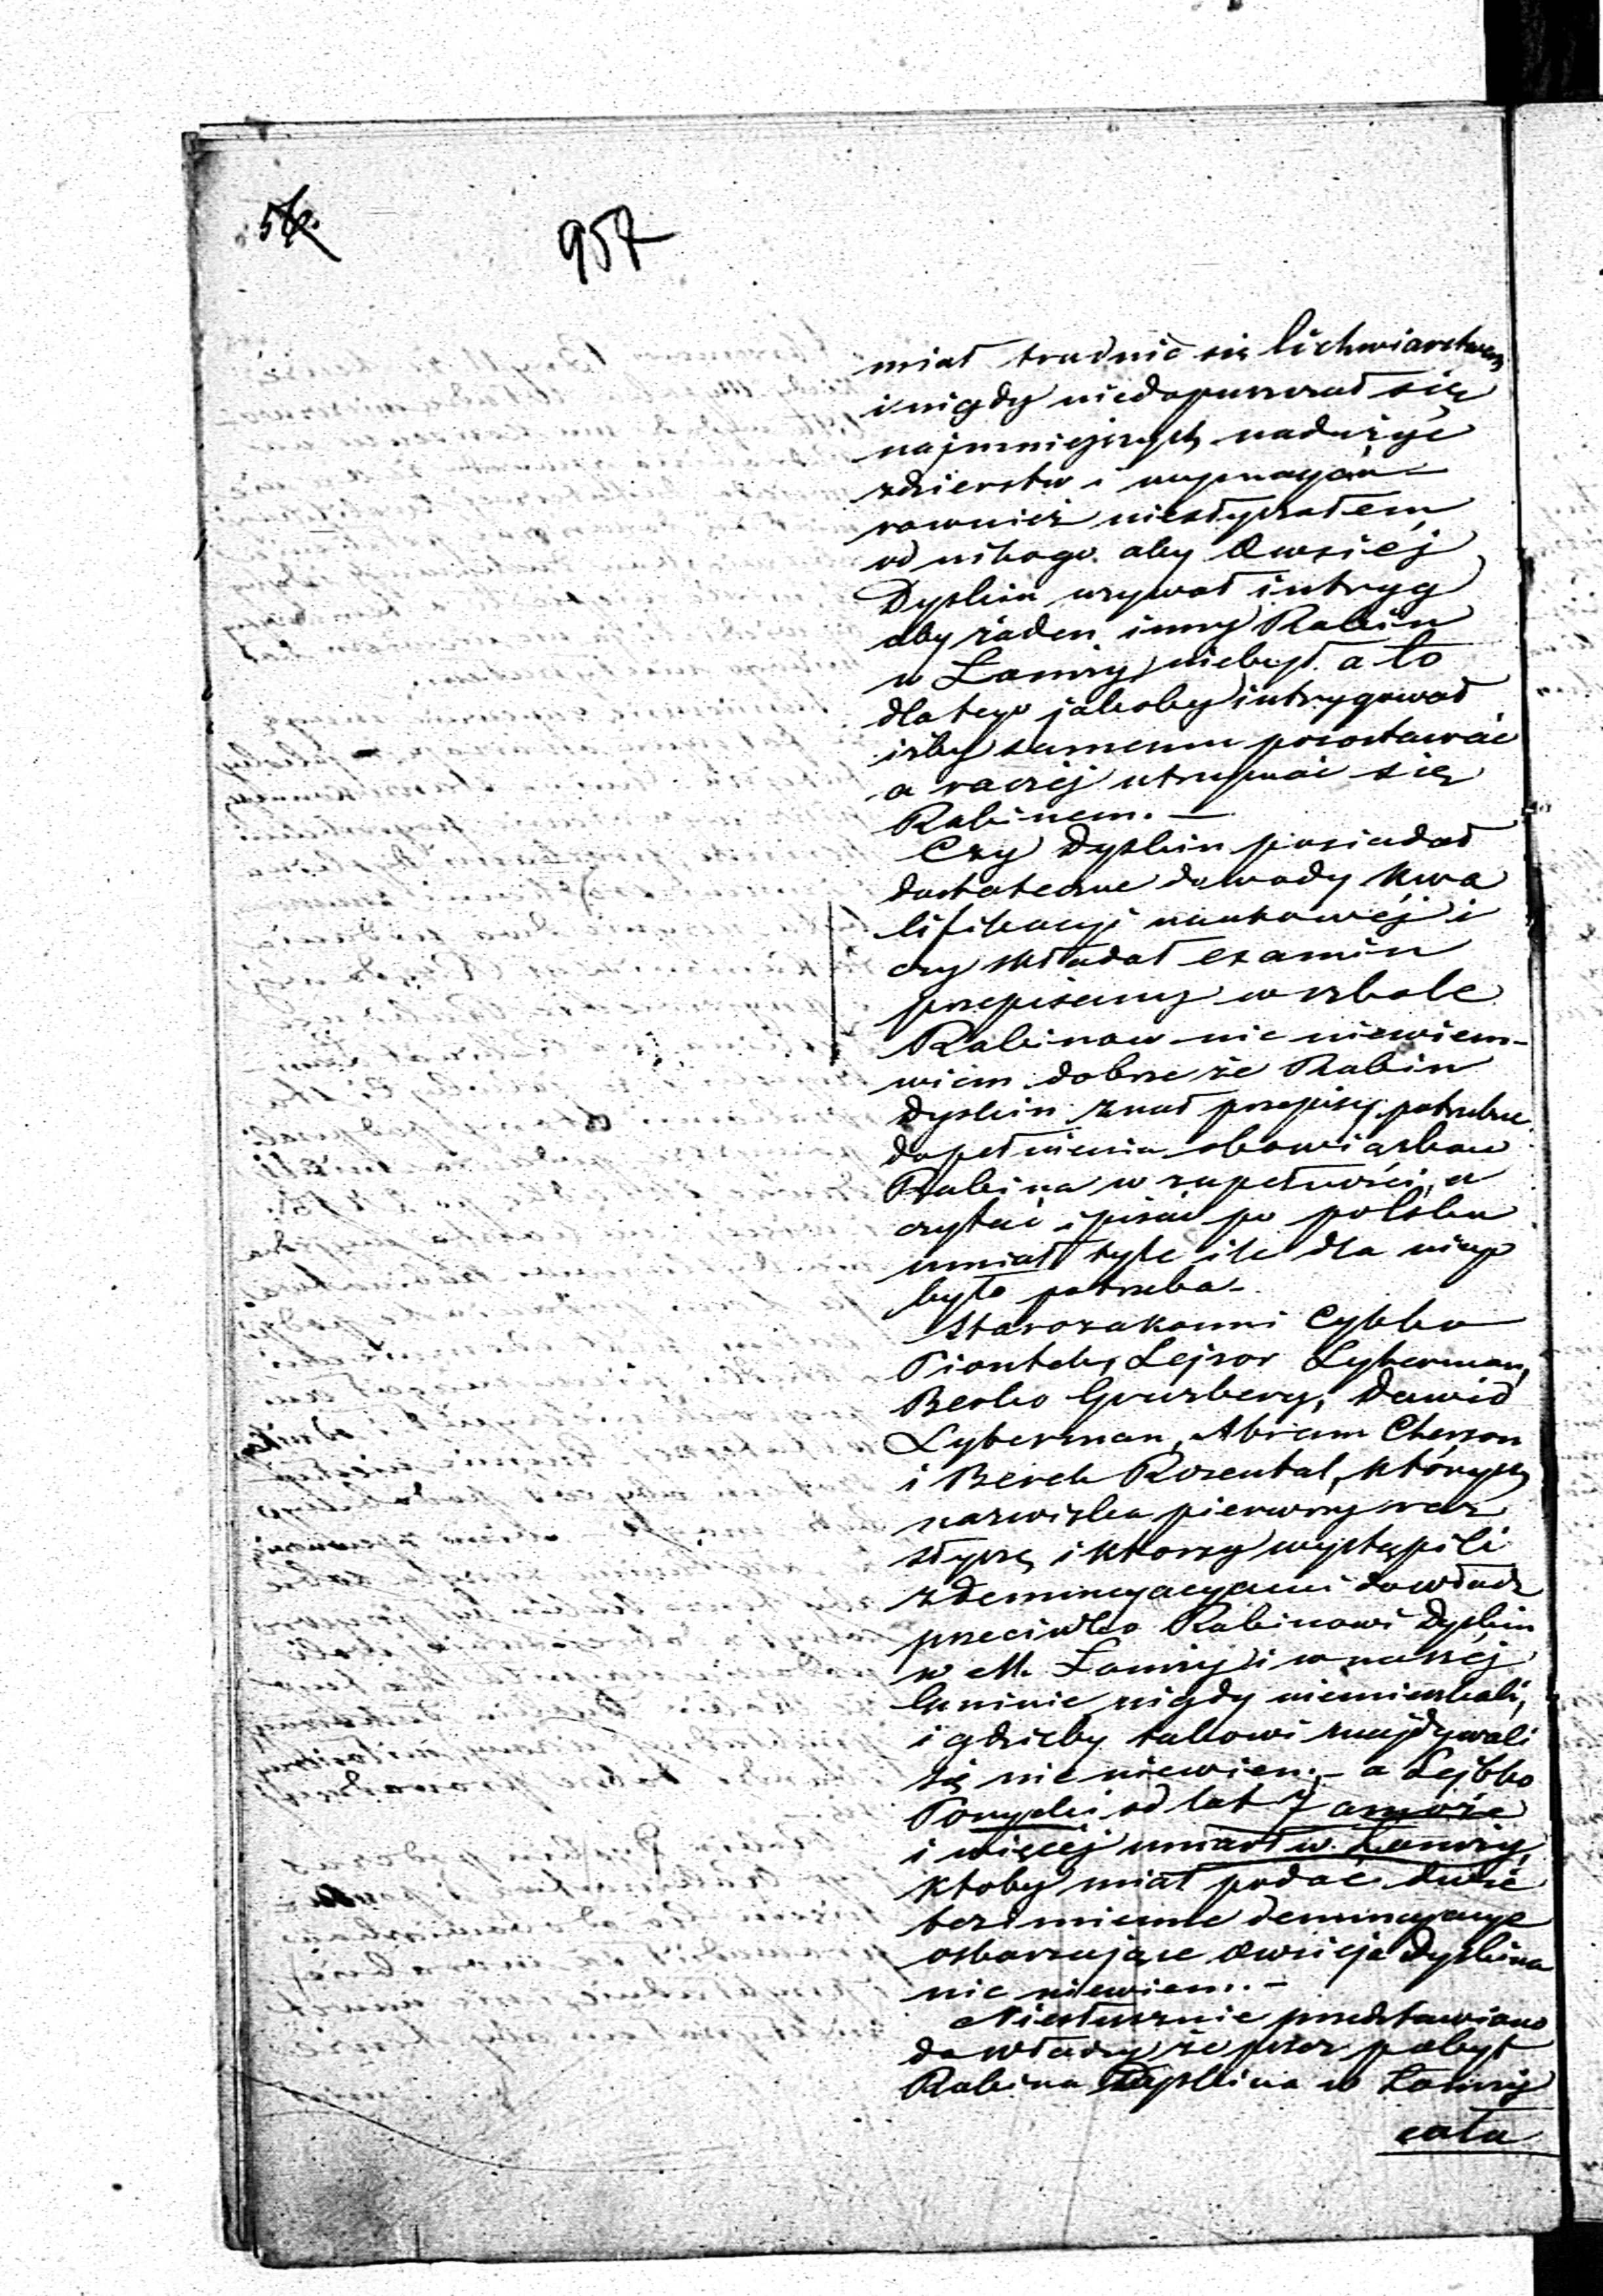 957
miał trudnić się lichwiarstwem
i nigdy niedopuszczał się
najmniejszych nadużyć
zdzierstw i wymagań –
rownież niesłyszałem
od nikogo aby Owsiej
Dyskin używał intryg
aby żaden inny Rabin
w Łomży niebył a to
dlatego jakoby intrygował
iżby samemu pozostawać
a raczej utrzymać się
Rabinem. –
Czy Dyskin posiadał
dostateczne dowody kwa
lifikacyi naukowej i
czy składał examin
przepisany w szkole
Rabinow nic niewiem –
wiem dobrze że Rabin
Dyskin znał przepisy potrzebne
dopełnienia obowiązkow
Rabina w zupełności, a
czytać i pisać po polsku
umiał tyle ile dla niego
było potrzeba –
Starozakonni Cybko
Piontek, Lejzor Lyberman,
Berko Gruzberg, Dawid
Lyberman, Abram Cherson
i Berek Rozental, których
nazwiska pierwszy raz
słyszę i ktorzy wystąpili
z denuncyacyami do władz
przeciwko Rabinowi Dyskin
w M. Łomży i w naszéj
Gminie nigdy niemieszkali,
i gdzieby takowi znajdywali
się nic niewiem, – a Lejbko
od lat 7 a może
i więcej umarł w Łomży,
ktoby miał podać dwie
bezimienne denuncyacye
oskarzające Owsieja Dyskina
nic niewiem. –
Niesłusznie przedstawiono
do władzy że przez pobyt
Rabina Dyskina w Łomży
cała